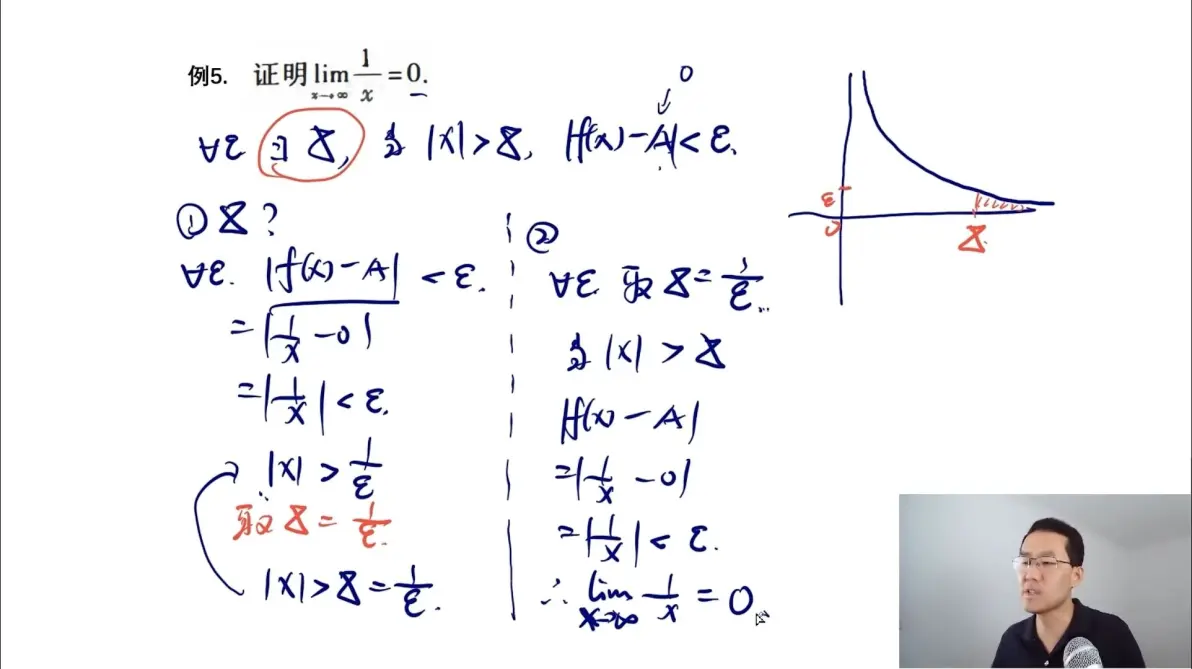 例5. 证明 lim x→∞ 1/x = 0.
0
∀ε ∃ X, 当 |x| > X, |f(x) - A| < ε.
① X ?
∀ε. |f(x) - A| < ε.
= |1/x - 0|
= |1/x| < ε.
|x| > 1/ε
取 X = 1/ε.
|x| > X = 1/ε.
②
∀ε 取 X = 1/ε
当 |x| > X
|f(x) - A|
= |1/x - 0|
= |1/x| < ε.
∴ lim x→∞ 1/x = 0
ε
0
X